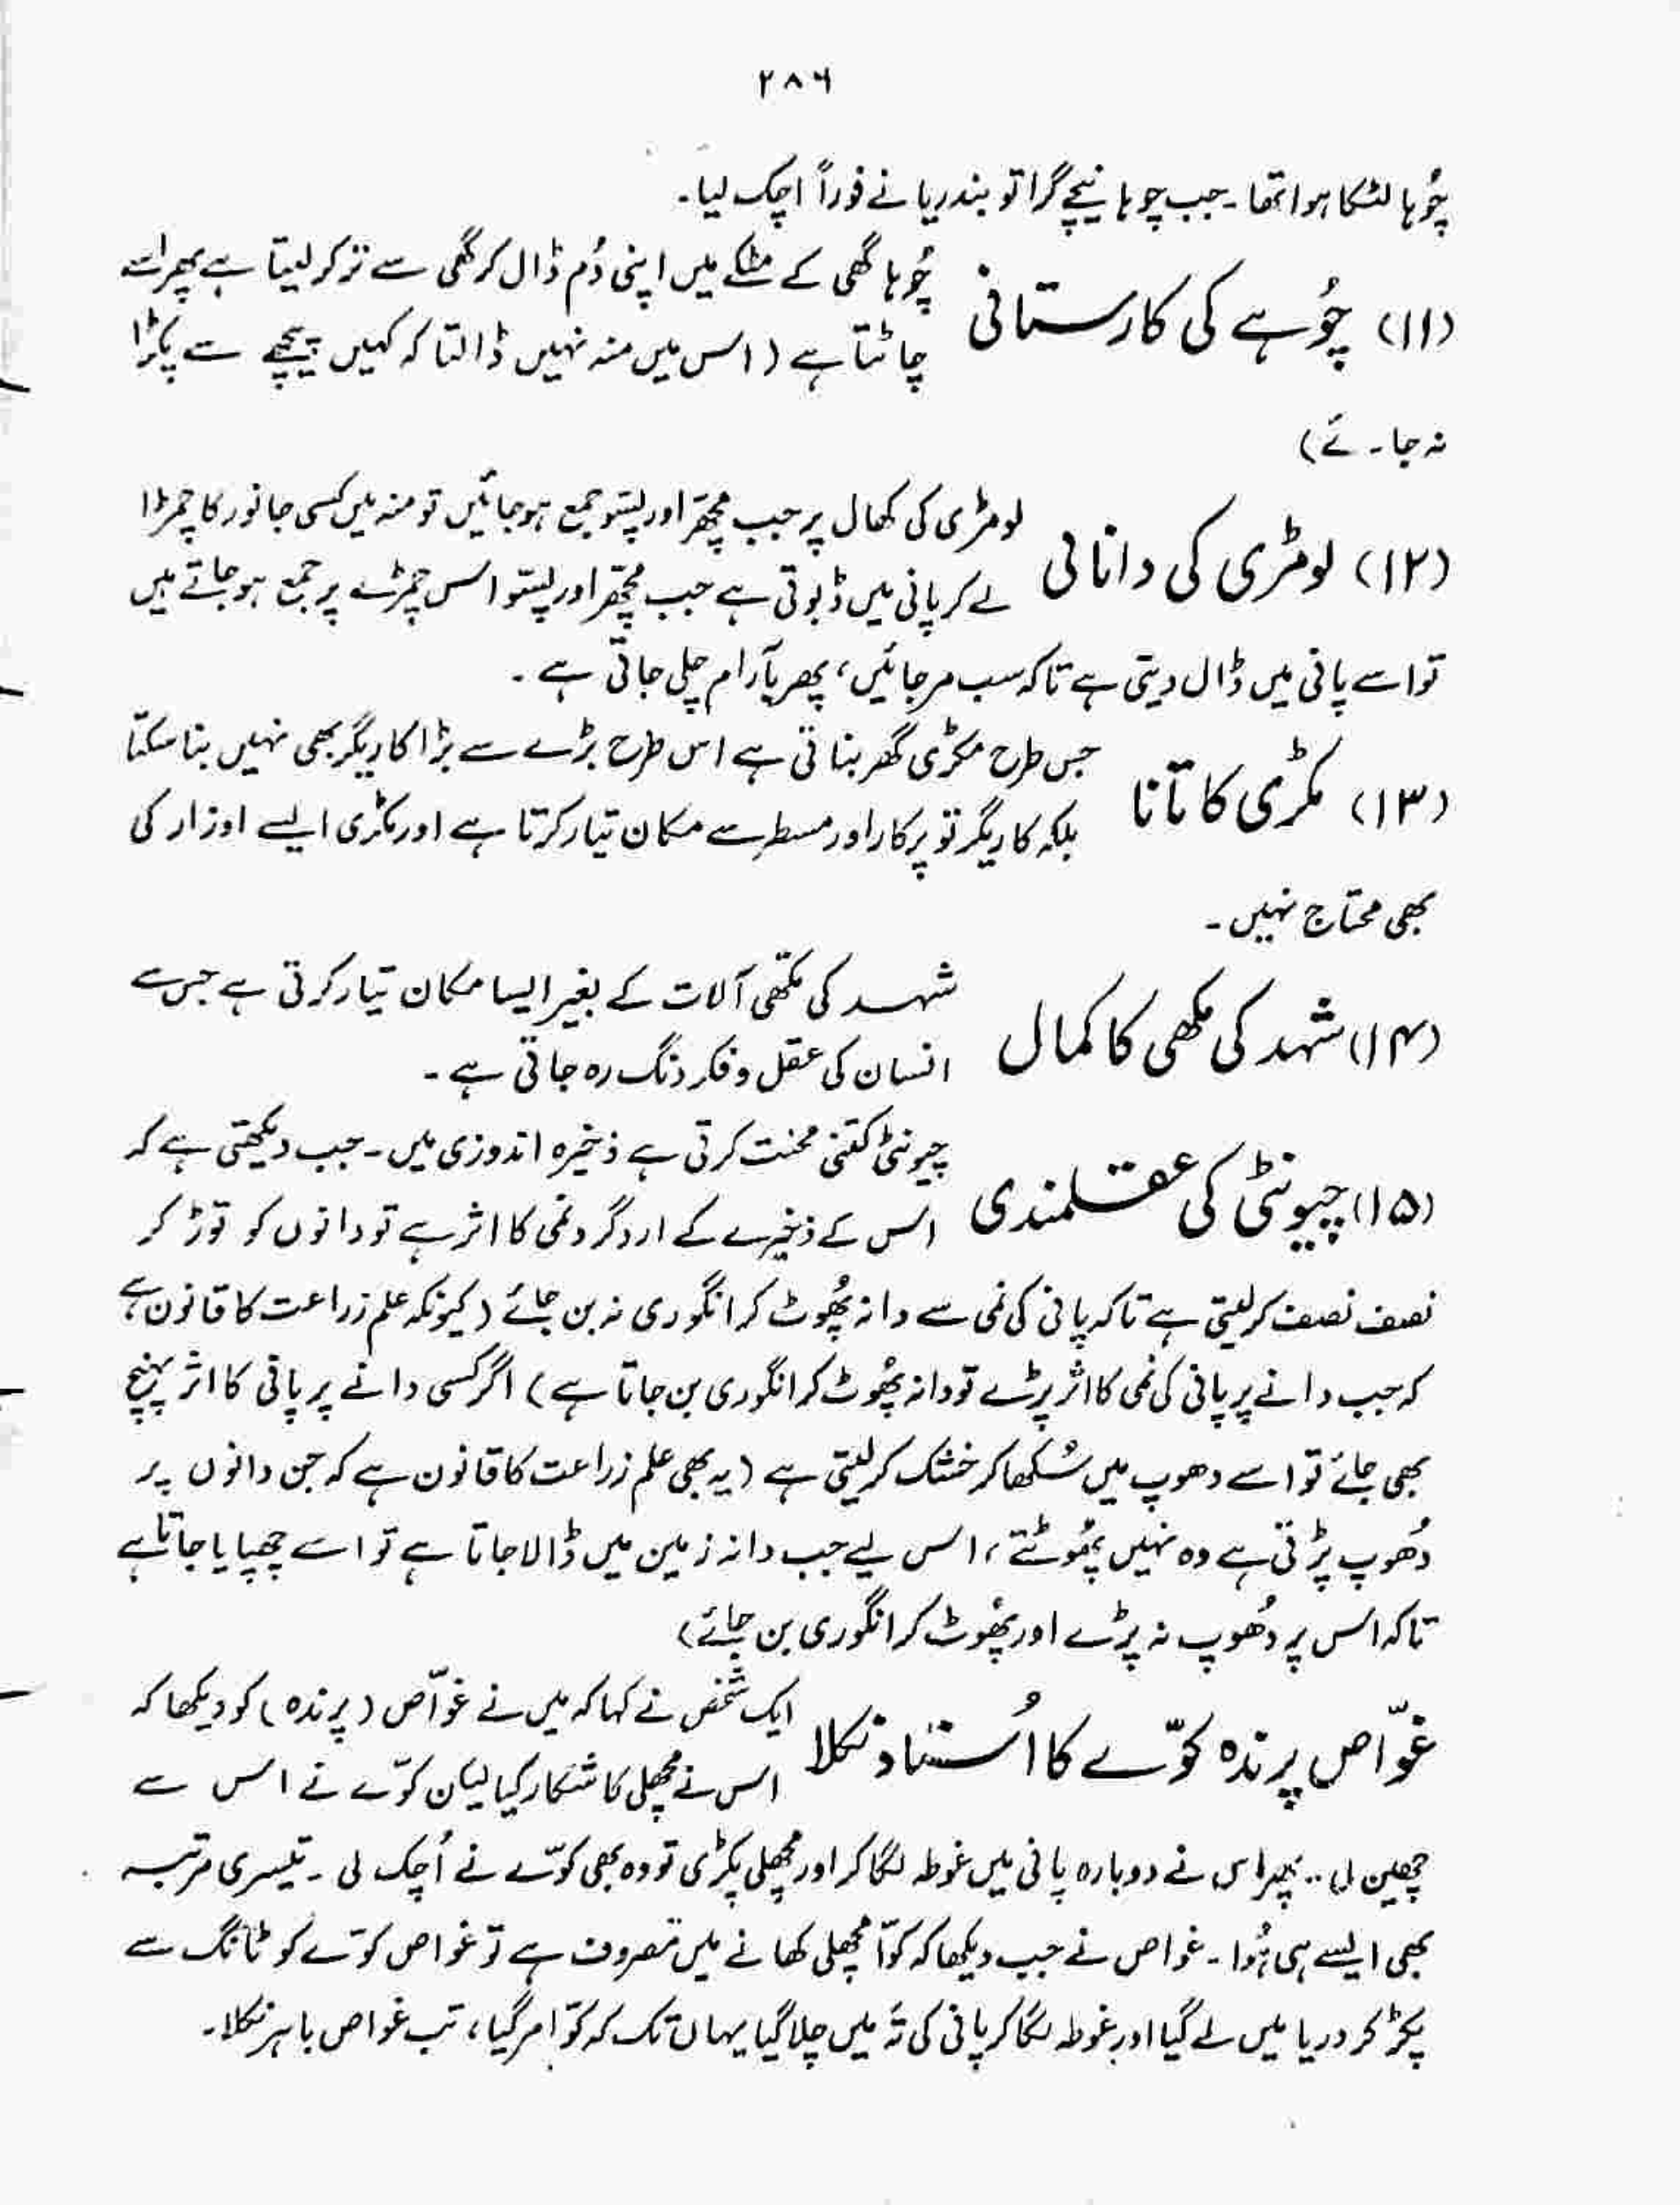 ۲۸۶
چُوہا لٹکا ہوا تھا۔ جب چوہا نیچے گرا تو بندریا نے فوراً اچک لیا۔
(۱۱) چُوہے کی کارستانی
چُوہا گھی کے مٹکے میں اپنی دُم ڈال کر گھی سے تر کر لیتا ہے پھر اسے
چاٹتا ہے (اس میں منہ نہیں ڈالتا کہ کہیں پیچھے سے پکڑا
نہ جائے)
(۱۲) لومڑی کی دانائی
لومڑی کی کھال پر جب مچھّر اور پسّو جمع ہو جائیں تو منہ میں کسی جانور کا چمڑا
لے کر پانی میں ڈبوتی ہے جب مچھّر اور پسّو اس چمڑے پر جمع ہو جاتے ہیں
تو اسے پانی میں ڈال دیتی ہے تاکہ سب مر جائیں، پھر بآرام چلی جاتی ہے۔
(۱۳) مکڑی کا تانا
جس طرح مکڑی گھر بناتی ہے اس طرح بڑے سے بڑا کاریگر بھی نہیں بنا سکتا
بلکہ کاریگر تو پرکار اور مسطر سے مکان تیار کرتا ہے اور مکڑی ایسے اوزار کی
بھی محتاج نہیں۔
(۱۴) شہد کی مکھی کا کمال
شہد کی مکّھی آلات کے بغیر ایسا مکان تیار کرتی ہے جس سے
انسان کی عقل و فکر دنگ رہ جاتی ہے۔
(۱۵) چیونٹی کی عقلمندی
چیونٹی کتنی محنت کرتی ہے ذخیرہ اندوزی میں۔ جب دیکھتی ہے کہ
اس کے ذخیرے کے اردگرد نمی کا اثر ہے تو دانوں کو توڑ کر
نصف نصف کر لیتی ہے تاکہ پانی کی نمی سے دانہ پھُوٹ کر انگوری نہ بن جائے (کیونکہ علم زراعت کا قانون ہے
کہ جب دانے پر پانی کی نمی کا اثر پڑے تو دانہ پھُوٹ کر انگوری بن جاتا ہے) اگر کسی دانے پر پانی کا اثر پہنچ
بھی جائے تو اسے دھوپ میں سُکھا کر خشک کر لیتی ہے (یہ بھی علم زراعت کا قانون ہے کہ جن دانوں پر
دُھوپ پڑتی ہے وہ نہیں پھُوٹتے، اس لیے جب دانہ زمین میں ڈالا جاتا ہے تو اسے چھپایا جاتا ہے
تاکہ اس پر دُھوپ نہ پڑے اور پھُوٹ کر انگوری بن جائے)
غوّاص پرندہ کوّے کا اُستاد نکلا
ایک شخص نے کہا کہ میں نے غوّاص (پرندہ) کو دیکھا کہ
اس نے مچھلی کا شکار کیا لیکن کوّے نے اس سے
چھین لی۔۔ پھر اس نے دوبارہ پانی میں غوطہ لگا کر اور مچھلی پکڑی تو وہ بھی کوّے نے اُچک لی۔ تیسری مرتبہ
بھی ایسے ہی ہُوا۔ غواص نے جب دیکھا کہ کوّا مچھلی کھانے میں مصروف ہے تو غواص کوّے کو ٹانگ سے
پکڑ کر دریا میں لے گیا اور غوطہ لگا کر پانی کی تَہ میں چلا گیا یہاں تک کہ کوّا مر گیا، تب غواص باہر نکلا۔